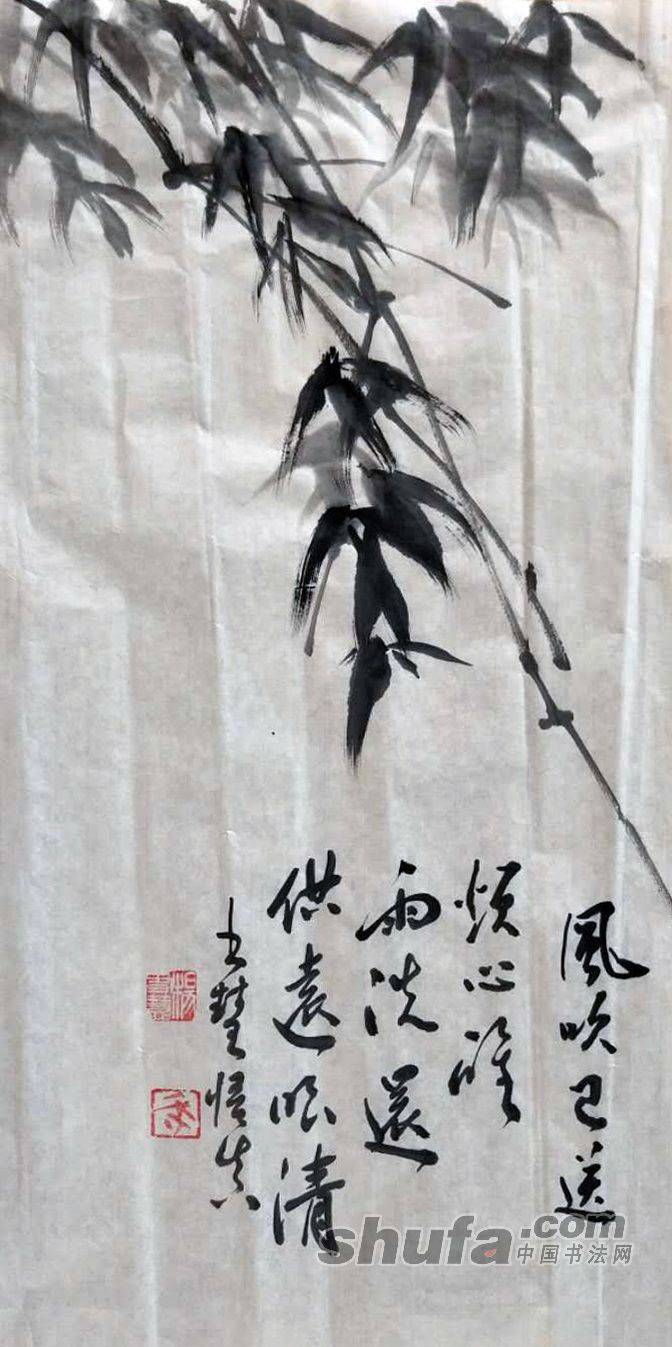 風吹已送
煩心醒
雨洗還
供遠眼清
悟真
shufa.com
中国书法网